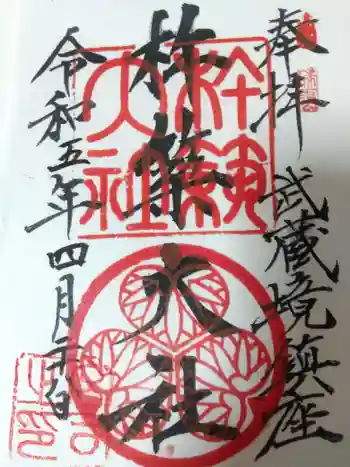 奉拝
武蔵境鎮座
杵築大社
令和五年四月二十日
杵築
大社